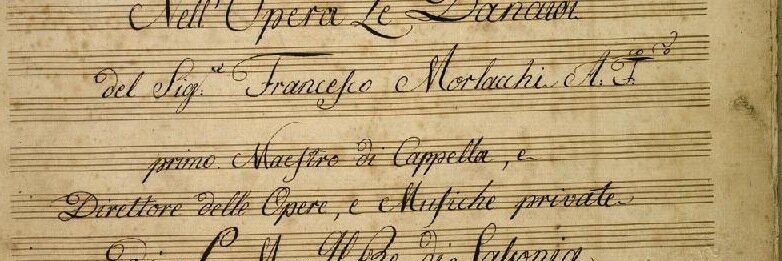 Nell'Opera Le Danaidi
del Sig.re Francesco Morlacchi A. F.
primo Maestro di Cappella, e
Direttore delle Opere, e Musiche private
di S. M. Il Re di Sassonia